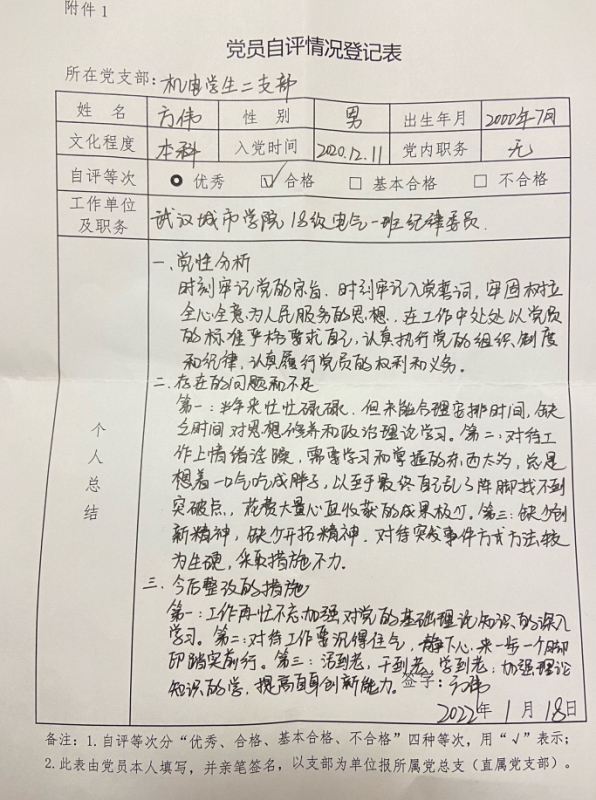 附件1
党员自评情况登记表
所在党支部：机电学生二支部
姓 名 方伟 性 别 男 出生年月 2000年7月
文化程度 本科 入党时间 2020.12.11 党内职务 无
自评等次 优秀 √合格 □ 基本合格 □ 不合格
工作单位及职务 武汉城市学院18级电气一班纪律委员.
个人总结
一、党性分析
时刻牢记党的宗旨、时刻牢记入党誓词，牢固树立
全心全意为人民服务的思想，在工作中处处以党员
的标准严格要求自己，认真执行党的组织、制度
和纪律，认真履行党员的权利和义务。
二、存在的问题和不足
第一：半年来忙忙碌碌，但未能合理安排时间，缺
乏时间对思想修养和政治理论学习。第二：对待工
作上情绪浮躁，需要学习和掌握的东西太多，总是
想着一口气吃成胖子，以至于最终自己乱了阵脚找不到
突破点，花费大量心血收获的成果极少。第三：缺少创
新精神，缺少开拓精神，对待突发事件方式方法较
为生硬，采取措施不力。
三、今后整改的措施
第一：工作再忙不忘加强对党的基础理论知识的深入
学习。第二：对待工作要沉得住气，静下心来一步一个脚
印踏实前行。第三：活到老，干到老，学到老；加强理论
知识的学，提高自身创新能力。
签字：方伟
2022年1月18日
备注：1.自评等次分“优秀、合格、基本合格、不合格”四种等次，用“√”表示；
2.此表由党员本人填写，并亲笔签名，以支部为单位报所属党总支（直属党支部）。